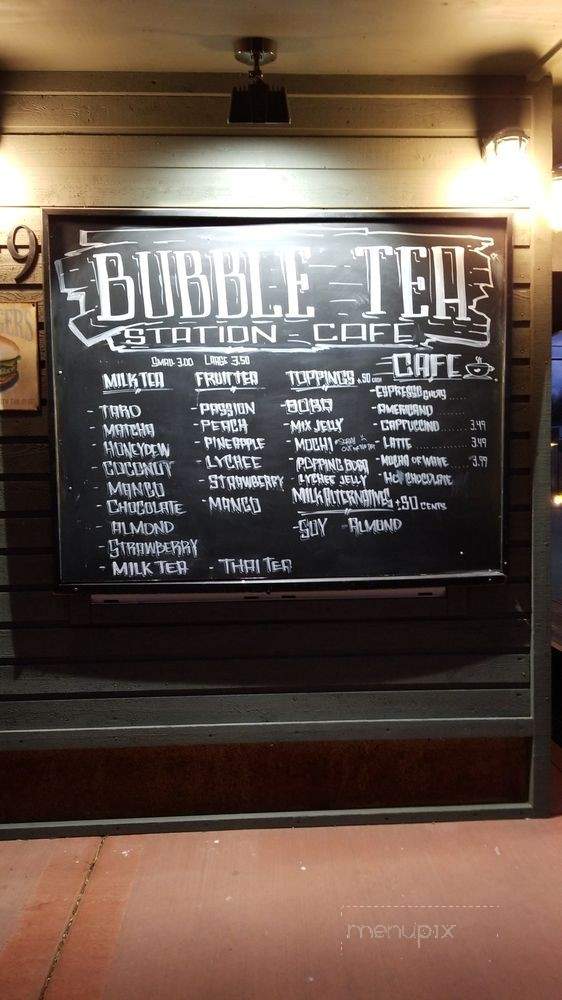 9
BUBBLE TEA
STATION CAFE
SMALL 3.00 LARGE 3.50
MILK TEA
- TARO
- MATCHA
HONEYDEW
- COCONUT
MANGO
- CHOCOLATE
- ALMOND
- STRAWBERRY
- MILK TEA
FRUIT TEA
- PASSION
- PEACH
- PINEAPPLE
- LYCHEE
- STRAWBERRY
- MANGO
- THAI TEA
TOPPINGS +.50 EACH
- BOBA
- MIX JELLY
- MOCHI
- POPPING BOBA
- LYCHEE JELLY
MILK ALTERNATIVES +.50 CENTS
- SOY - ALMOND
CAFE
- ESPRESSO SHOTS .....
- AMERICANO
- CAPPUCINO ..... 3.49
- LATTE ..... 3.49
- MOCHA OF WHITE .... 3.99
- HOT CHOCOLATE
menupix